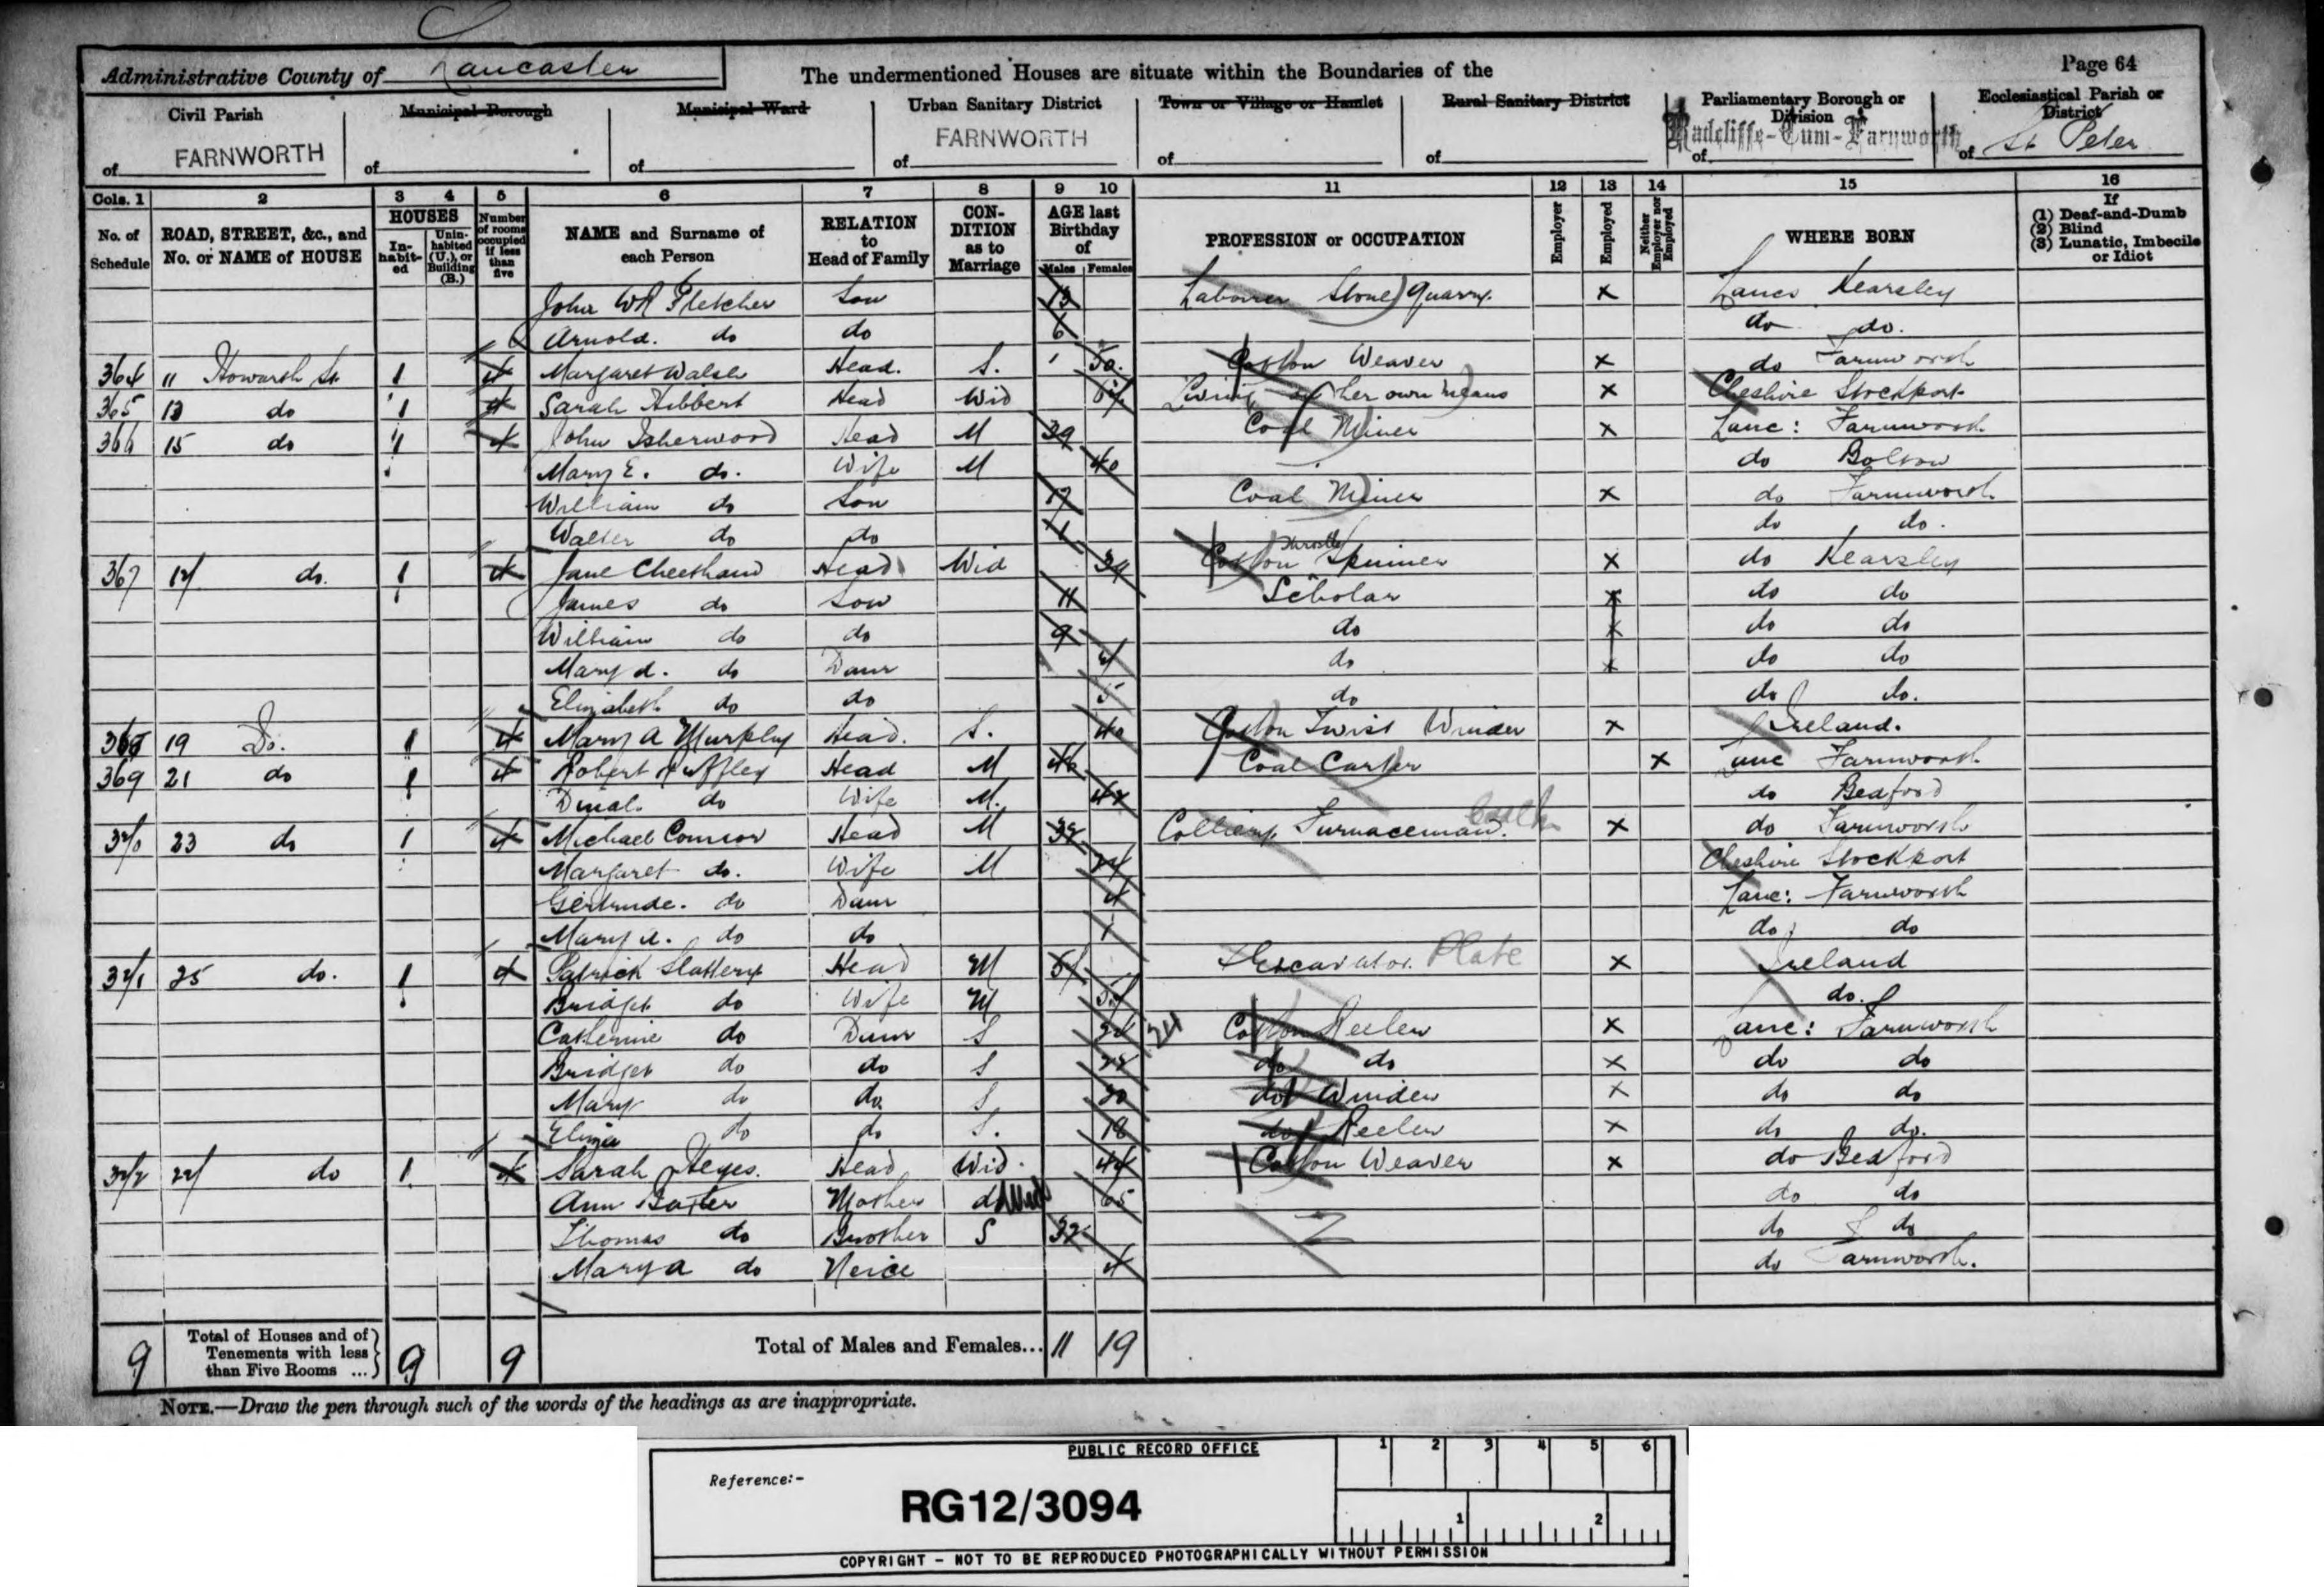 Administrative County of Lancaster The undermentioned Houses are situate within the Boundaries of the Page 64
Civil Parish Municipal Borough Municipal Ward Urban Sanitary District Town or Village or Hamlet Rural Sanitary District Parliamentary Borough or Division Ecclesiastical Parish or District
of FARNWORTH of of of FARNWORTH of of of Radcliffe-Cum-Farnworth of St Peter
Cols. 1 2 3 4 5 6 7 8 9 10 11 12 13 14 15 16
No. of Schedule ROAD, STREET, &c., and No. or NAME of HOUSE HOUSES Inhabited Uninhabited (U.), or Building (B.) Number of rooms occupied if less than five NAME and Surname of each Person RELATION to Head of Family CONDITION as to Marriage AGE last Birthday of Males Females PROFESSION or OCCUPATION Employer Employed Neither Employer nor Employed WHERE BORN If (1) Deaf-and-Dumb (2) Blind (3) Lunatic, Imbecile or Idiot
John Wm Fletcher Son Labourer Stone Quarry x Lancs Kearsley
Arnold. do do 6 do do.
364 11 Howarth St 1 4 Margaret Walsh Head. S. 50. Cotton Weaver x do Farnworth
365 13 do 1 4 Sarah Hibbert Head Wid Living of her own Means x Cheshire Stockport
366 15 do 1 4 John Isherwood Head M 39 Coal Miner x Lanc: Farnworth
Mary E. do. Wife M 40 do Bolton
William do Son 17 Coal Miner x do Farnworth
Walter do do 1 do do.
367 17 do. 1 4 Jane Cheetham Head Wid 34 Cotton Throstle Spinner x do Kearsley
James do Son 11 Scholar x do do
William do do 9 do x do do
Mary A. do Daur 7 do x do do
Elizabeth do do 5 do do do.
368 19 Do. 1 4 Mary A Murphy Head. S. 40 Cotton Twist Winder x Ireland.
369 21 do 1 4 Robert Head M 46 Coal Carter x Lanc Farnworth
do Wife M. 42 do Bedford
370 23 do 1 4 Michael Connor Head M 32 Colliery Furnaceman. x do Farnworth
Margaret do. Wife M 27 Cheshire Stockport
Gertrude. do Daur 4 Lanc: Farnworth
Mary A. do do 1 do do
371 25 do. 1 4 Patrick Slattery Head M 57 Excavator. Plate x Ireland
Bridget do Wife M 57 do.
Catherine do Daur S 24 24 Cotton Reeler x Lanc: Farnworth
Bridget do do S 22 do do x do do
Mary do do S 20 do Winder x do do
Eliza do do S. 18 do Reeler x do do.
372 27 do 1 4 Sarah Heyes. Head Wid. 44 Cotton Weaver x do Bedford
Ann Baxter Mother do Wid 65 do do
Thomas do Brother S 32 do do
Mary A do Neice 4 do Farnworth.
9 Total of Houses and of Tenements with less than Five Rooms ... 9 9 Total of Males and Females... 11 19
NOTE.—Draw the pen through such of the words of the headings as are inappropriate.
PUBLIC RECORD OFFICE 1 2 3 4 5 6
Reference:-
RG12/3094
1 2
COPYRIGHT - NOT TO BE REPRODUCED PHOTOGRAPHICALLY WITHOUT PERMISSION